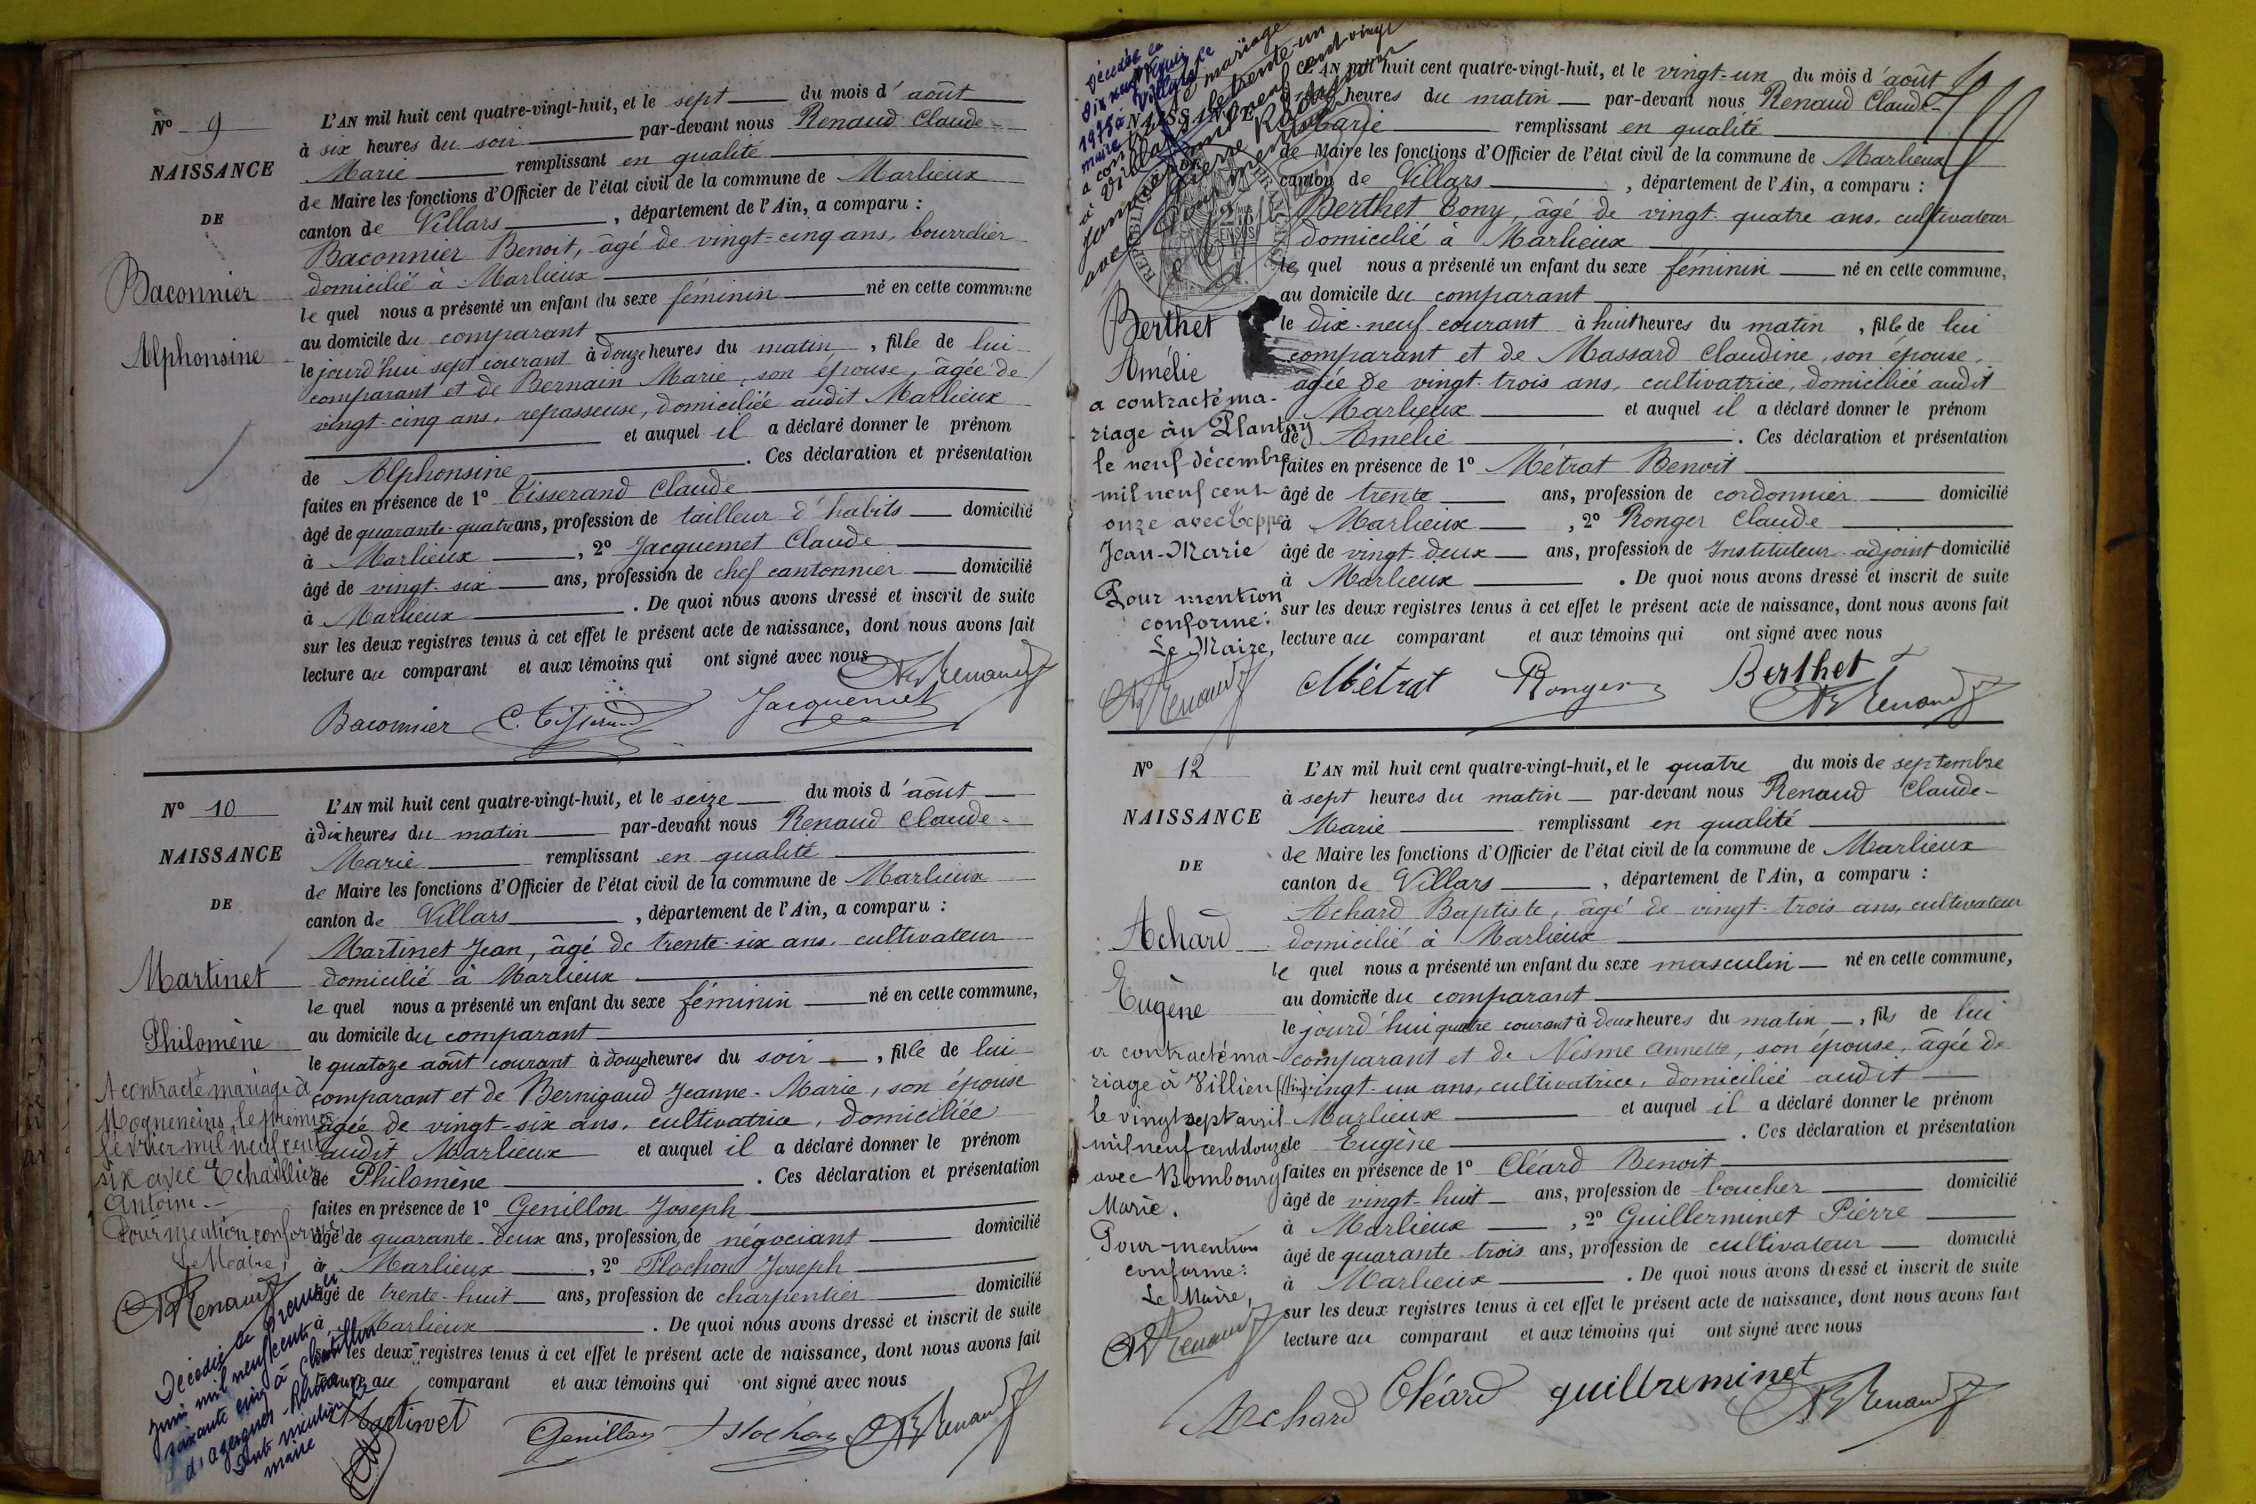 N° 9
NAISSANCE
DE
Baconnier
Alphonsine
L'AN mil huit cent quatre-vingt-huit, et le sept du mois d'août
à six heures du soir par-devant nous Renaud Claude-
Marie remplissant en qualité
de Maire les fonctions d'Officier de l'état civil de la commune de Marlieux
canton de Villars, département de l'Ain, a comparu :
Baconnier Benoit, âgé de vingt-cinq ans, bourrelier
domicilié à Marlieux
le quel nous a présenté un enfant du sexe féminin né en cette commune
au domicile du comparant
le jourd'hui sept courant à douze heures du matin, fille de lui
comparant et de Bernain Marie, son épouse, âgée de
vingt-cinq ans, repasseuse, domiciliée audit Marlieux
et auquel il a déclaré donner le prénom
de Alphonsine. Ces déclaration et présentation
faites en présence de 1° Tisserand Claude
âgé de quarante-quatre ans, profession de tailleur d'habits domicilié
à Marlieux, 2° Jacquemet Claude
âgé de vingt-six ans, profession de chef cantonnier domicilié
à Marlieux. De quoi nous avons dressé et inscrit de suite
sur les deux registres tenus à cet effet le présent acte de naissance, dont nous avons fait
lecture au comparant et aux témoins qui ont signé avec nous
Renaud
Baconnier C. Tisserand Jacquemet
N° 10
NAISSANCE
DE
Martinet
Philomène
A contracté mariage à
Mogneneins, le premier
février mil neuf cent
six avec Echallier
Antoine.-
Pour mention conforme,
Le Maire,
Renaud
Décédée le premier
juin mil neuf cent
soixante cinq à Châtillon
d'Azergues - Rhône
Dont mention
maire
L'AN mil huit cent quatre-vingt-huit, et le seize du mois d'août
à dix heures du matin par-devant nous Renaud Claude-
Marie remplissant en qualité
de Maire les fonctions d'Officier de l'état civil de la commune de Marlieux
canton de Villars, département de l'Ain, a comparu :
Martinet Jean, âgé de trente-six ans, cultivateur
domicilié à Marlieux
le quel nous a présenté un enfant du sexe féminin né en cette commune,
au domicile du comparant
le quatoze août courant à douze heures du soir, fille de lui
comparant et de Bernigaud Jeanne-Marie, son épouse
âgée de vingt-six ans, cultivatrice, domiciliée
audit Marlieux et auquel il a déclaré donner le prénom
de Philomène. Ces déclaration et présentation
faites en présence de 1° Genillon Joseph
âgé de quarante-deux ans, profession de négociant domicilié
à Marlieux, 2° Flochon Joseph
âgé de trente-huit ans, profession de charpentier domicilié
à Marlieux. De quoi nous avons dressé et inscrit de suite
sur les deux registres tenus à cet effet le présent acte de naissance, dont nous avons fait
lecture au comparant et aux témoins qui ont signé avec nous
Martinet Genillon Flochon Renaud
Décédée le
dix neuf
1975 à Villars
maire
NAISSANCE
RÉPUBLIQUE FRANÇAISE
Berthet
Amélie
a contracté ma-
riage au Plantay
le neuf décembre
mil neuf cent
onze avec Teppe
Jean-Marie
Pour mention
conforme:
Le Maire,
Renaud
L'AN mil huit cent quatre-vingt-huit, et le vingt-un du mois d'août
heures du matin par-devant nous Renaud Claude-
Marie remplissant en qualité
de Maire les fonctions d'Officier de l'état civil de la commune de Marlieux
canton de Villars, département de l'Ain, a comparu :
Berthet Tony, âgé de vingt-quatre ans, cultivateur
domicilié à Marlieux
le quel nous a présenté un enfant du sexe féminin né en cette commune,
au domicile du comparant
le dix-neuf courant à huit heures du matin, fille de lui
comparant et de Massard Claudine, son épouse,
âgée de vingt-trois ans, cultivatrice, domiciliée audit
Marlieux et auquel il a déclaré donner le prénom
de Amélie. Ces déclaration et présentation
faites en présence de 1° Métrat Benoit
âgé de trente ans, profession de cordonnier domicilié
à Marlieux, 2° Ronger Claude
âgé de vingt-deux ans, profession de Instituteur-adjoint domicilié
à Marlieux. De quoi nous avons dressé et inscrit de suite
sur les deux registres tenus à cet effet le présent acte de naissance, dont nous avons fait
lecture au comparant et aux témoins qui ont signé avec nous
Métrat Ronger Berthet
Renaud
N° 12
NAISSANCE
DE
Achard
Eugène
a contracté ma-
riage à Villieu (Ain)
le vingt sept avril
mil neuf cent douze
avec Bombourg
Marie.
Pour mention
conforme:
Le Maire,
Renaud
L'AN mil huit cent quatre-vingt-huit, et le quatre du mois de septembre
à sept heures du matin par-devant nous Renaud Claude-
Marie remplissant en qualité
de Maire les fonctions d'Officier de l'état civil de la commune de Marlieux
canton de Villars, département de l'Ain, a comparu :
Achard Baptiste, âgé de vingt-trois ans, cultivateur
domicilié à Marlieux
le quel nous a présenté un enfant du sexe masculin né en cette commune,
au domicile du comparant
le jourd'hui quatre courant à deux heures du matin, fils de lui
comparant et de Nesme Annette, son épouse, âgée de
vingt-un ans, cultivatrice, domiciliée audit
Marlieux et auquel il a déclaré donner le prénom
de Eugène. Ces déclaration et présentation
faites en présence de 1° Cléard Benoit
âgé de vingt-huit ans, profession de boucher domicilié
à Marlieux, 2° Guillerminet Pierre
âgé de quarante trois ans, profession de cultivateur domicilié
à Marlieux. De quoi nous avons dressé et inscrit de suite
sur les deux registres tenus à cet effet le présent acte de naissance, dont nous avons fait
lecture au comparant et aux témoins qui ont signé avec nous
Achard Cléard guillreminet Renaud